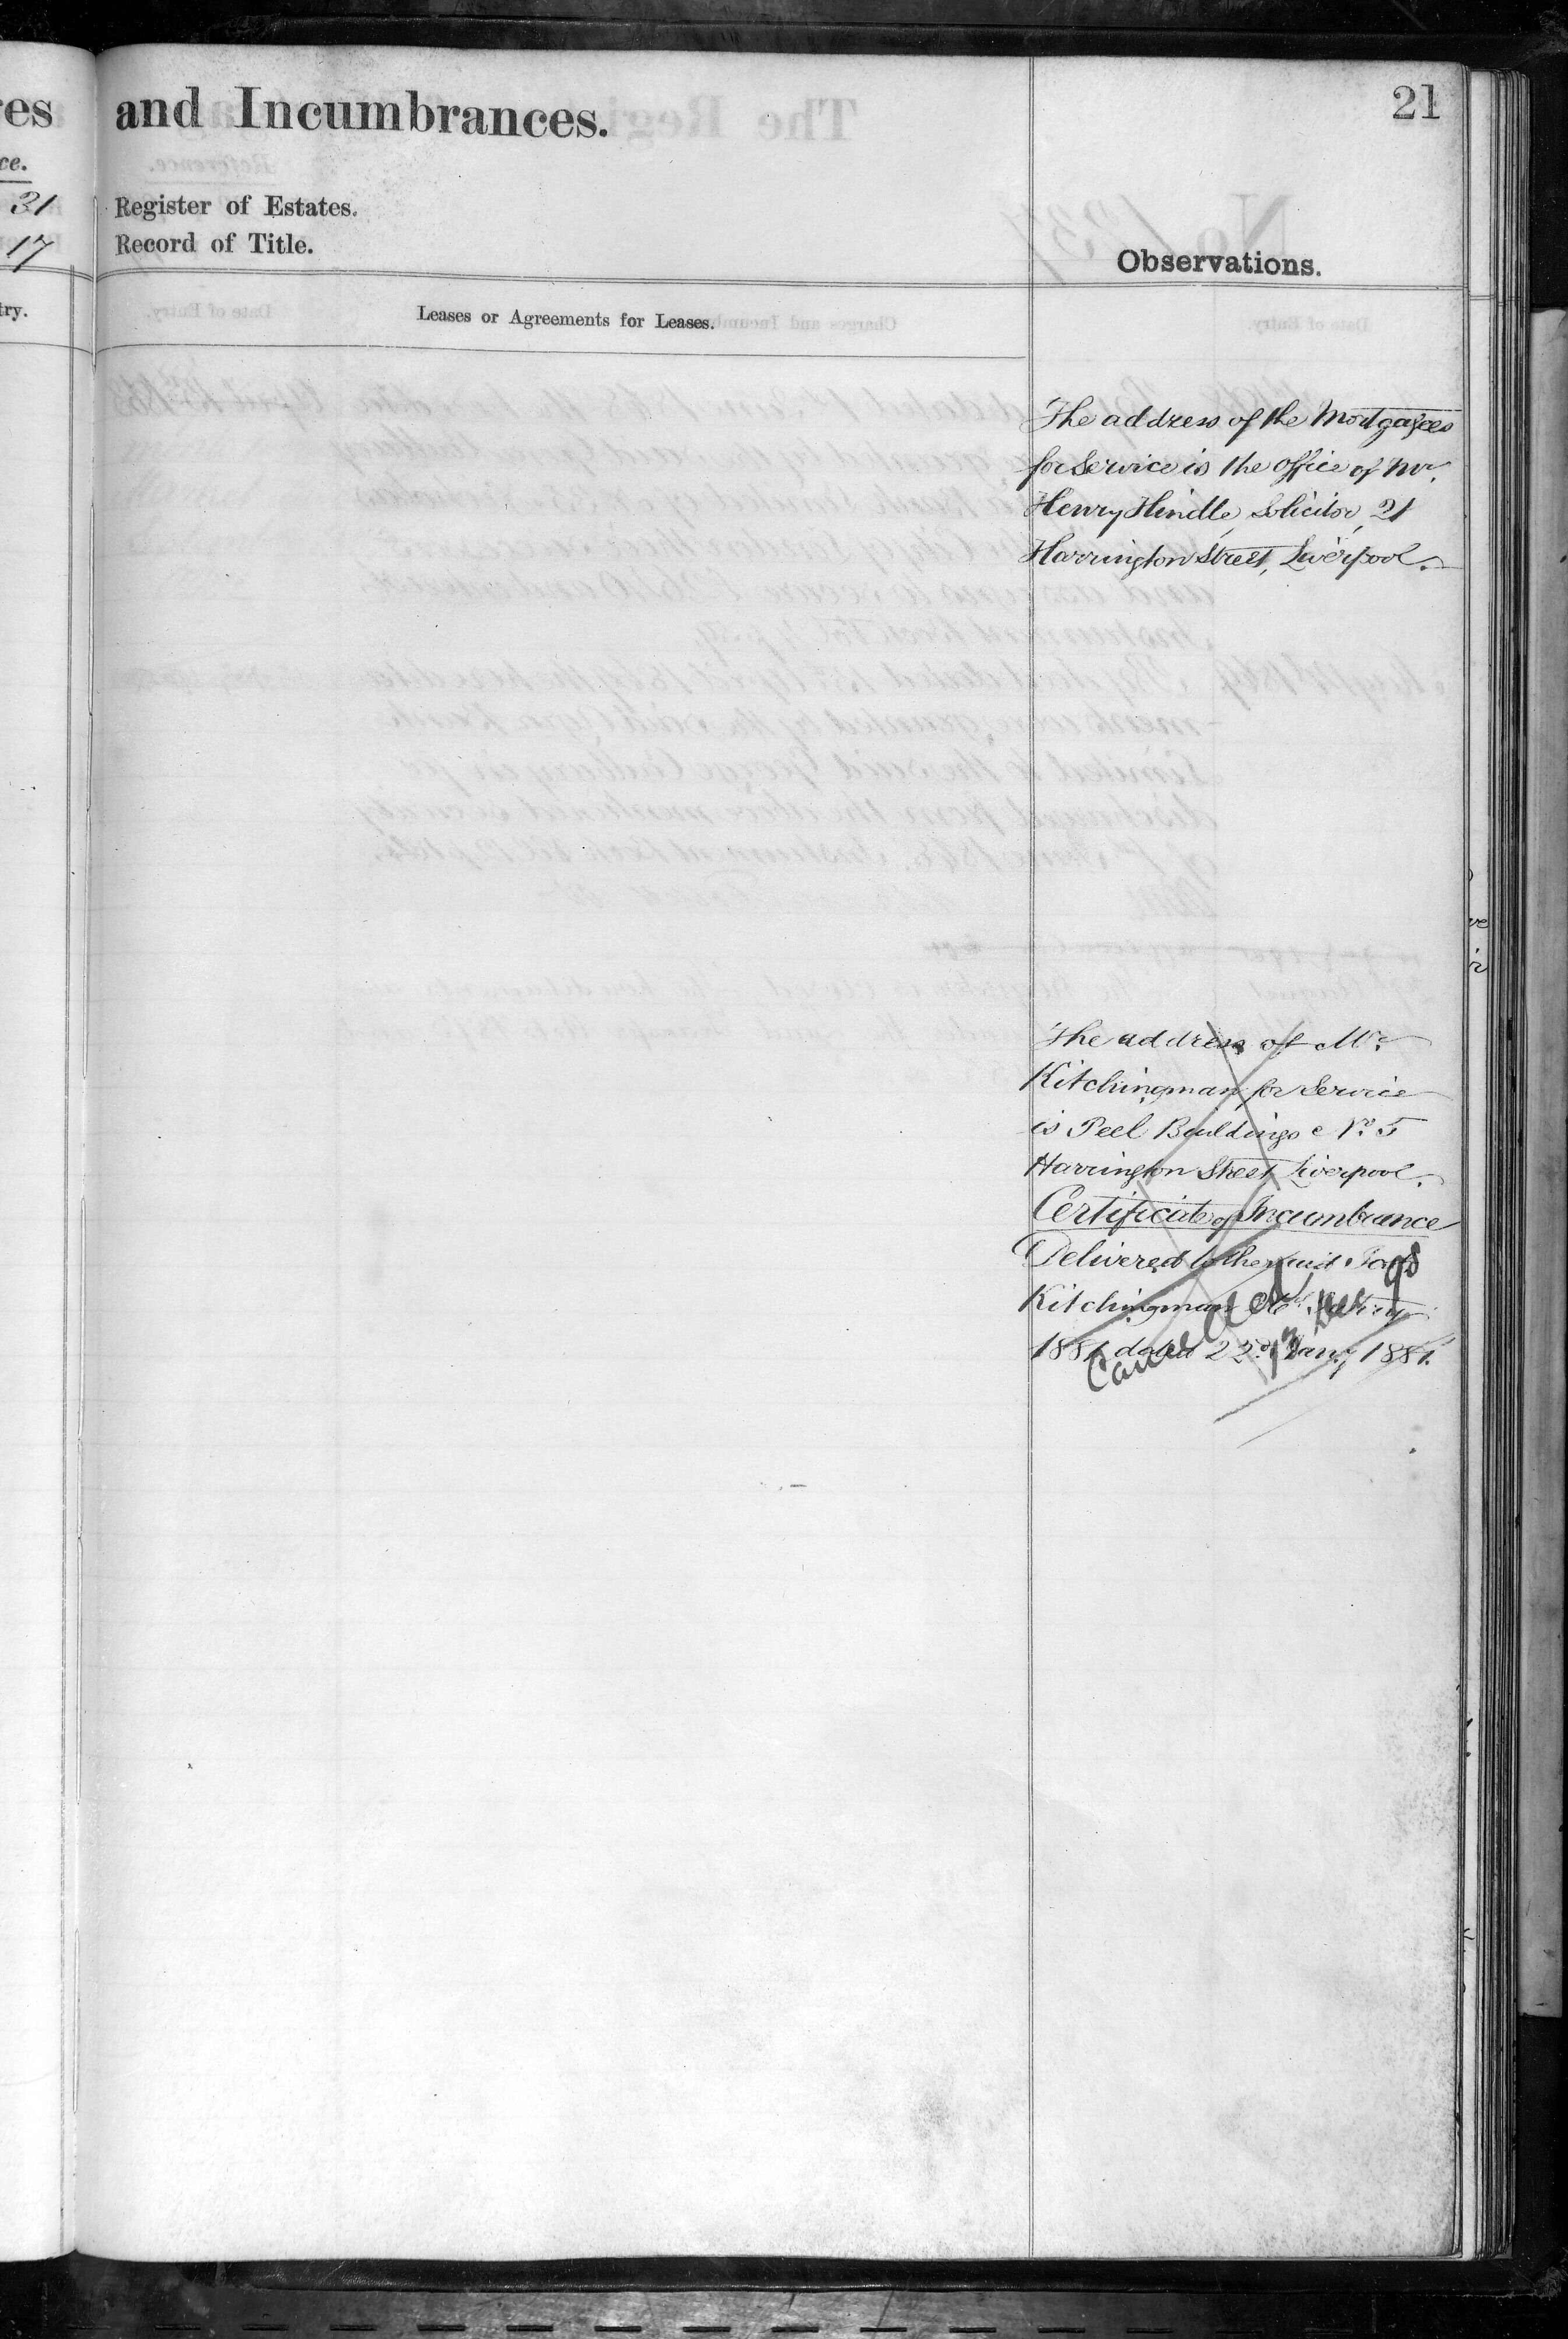 es and Incumbrances. 21
ce.
31 Register of Estates.
17 Record of Title.
Observations.
try. Leases or Agreements for Leases.
The address of the Mortgagees
for Service is the office of Mr.
Henry Hindle, Solicitor, 21
Harrington Street, Liverpool.
The address of Mr.
Kitchingman for Service
is Peel Buildings No. 5
Harrington Street Liverpool.
Certificate of Incumbrance
Delivered to the said
Kitchingman
1881 dated 22nd Jany 1881.
Cancelled 13 98